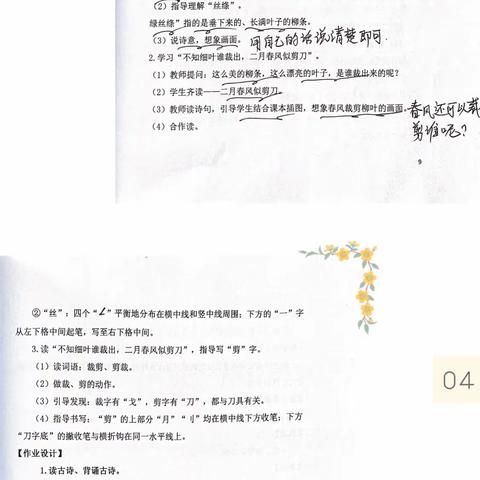 (2)指导理解“丝绦”。
绿丝绦”指的是垂下来的、长满叶子的柳条。
(3)说诗意,想象画面。 用自己的话说清楚即可.
2.学习“不知细叶谁裁出,二月春风似剪刀”。
(1)教师提问:这么美的柳条,这么漂亮的叶子,是谁裁出来的呢?
(2)学生齐读——二月春风似剪刀。
(3)教师读诗句,引导学生结合课本插图,想象春风裁剪柳叶的画面。 春风还可以裁
(4)合作读。 剪谁呢?
9
②“丝”:四个“ㄥ”平衡地分布在横中线和竖中线周围;下方的“一”字
从左下格中间起笔,写至右下格中间。
3.读“不知细叶谁裁出,二月春风似剪刀”,指导写“剪”字。
(1)读词语:裁剪、剪裁。
(2)做裁、剪的动作。
(3)引导发现:裁字有“戈”,剪字有“刀”,都与刀具有关。
(4)指导书写:“剪”的上部分“月”“刂”均在横中线下方收笔;下方
“刀字底”的撇收笔与横折钩在同一水平线上。
【作业设计】
1.读古诗、背诵古诗。
04